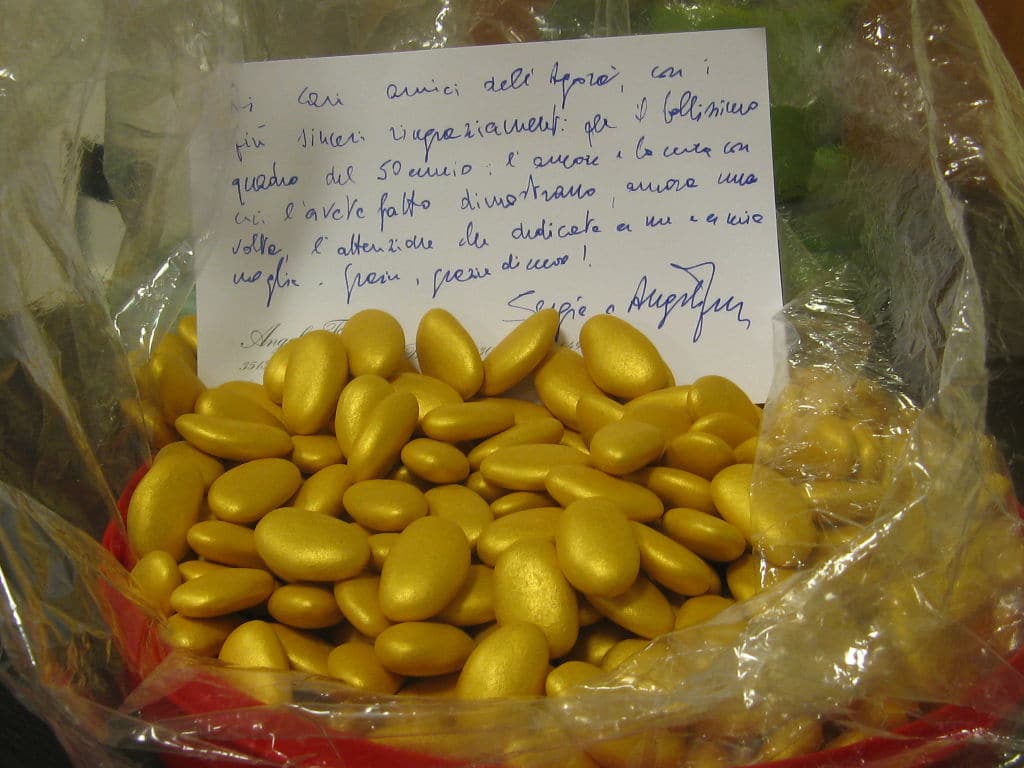 Ai cari amici dell'Agorà, con i
più sinceri ringraziamenti per il bellissimo
quadro del 50ennio: l'amore e la cura con
cui l'avete fatto dimostrano, ancora una
volta, l'attenzione che dedicate a me e a mia
moglie. Grazie, grazie di cuore!
Sergio e
Angelo
3513